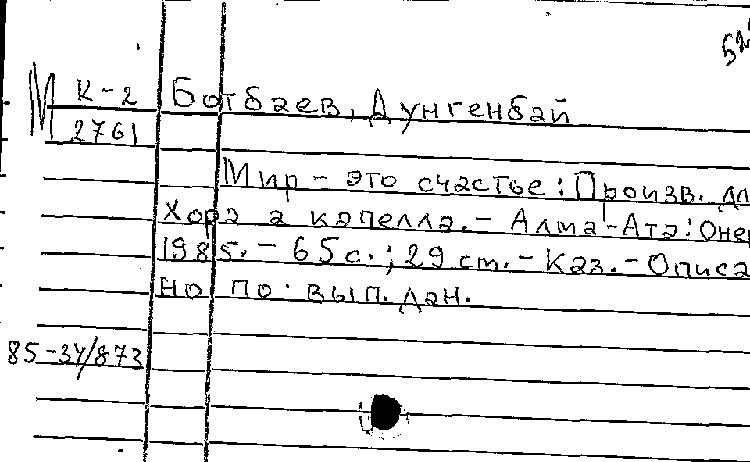 52
М К-2 Ботбаев, Дунгенбай
2761
Мир - это счастье: Произв. дл
хора а капелла. - Алма-Ата: Оне
1985. - 65 с.; 29 см. - Каз. - Описа
но по вып. дан.
85-34/873